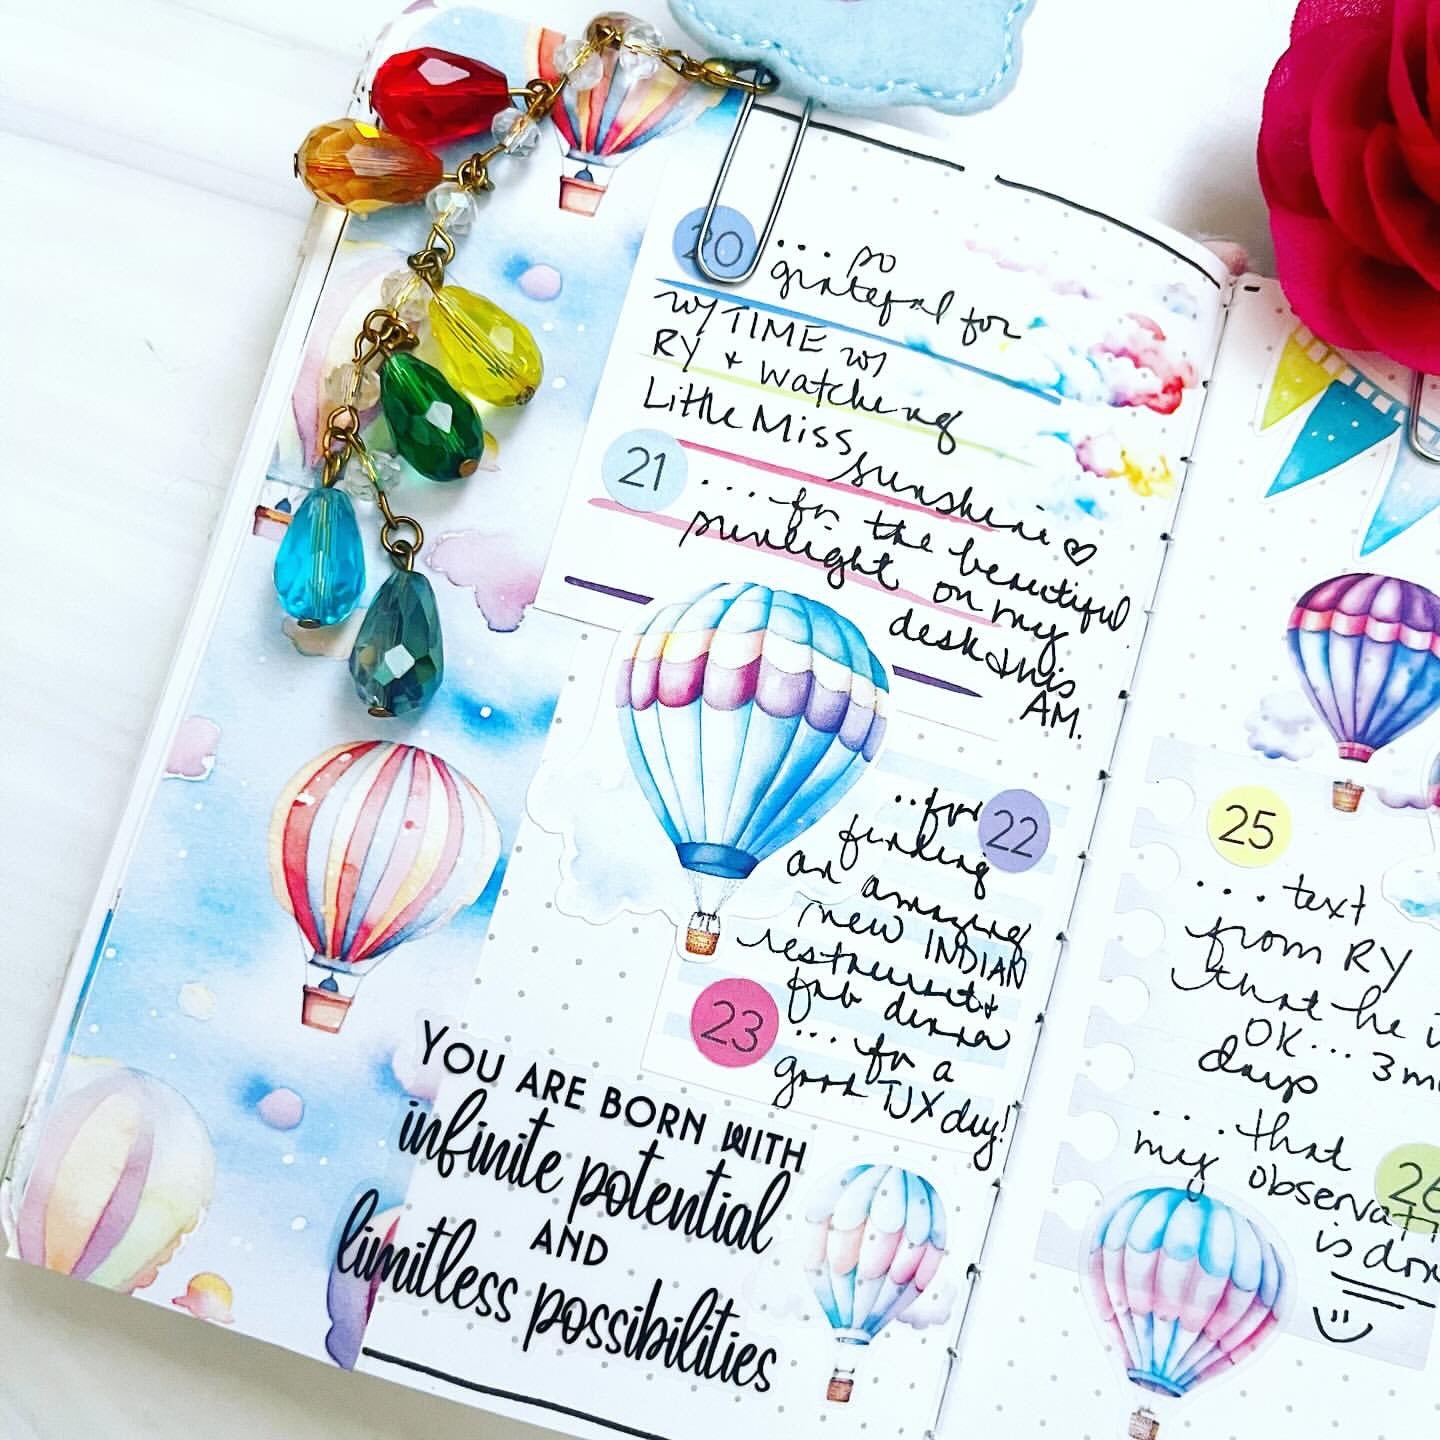 20 ... so
grateful for
w/ TIME w/
RY + watching
Little Miss
Sunshine ♡
21 .... for the beautiful
sunlight on my
desk this
AM.
..for 22
finding
an amazing
new INDIAN
restaurant +
fab dinna
23 ... for a
good TJX day!
YOU ARE BORN WITH
infinite potential
AND
limitless possibilities
25
... text
from RY
that he i
OK... 3 m
days
... that
my observati 26
is don